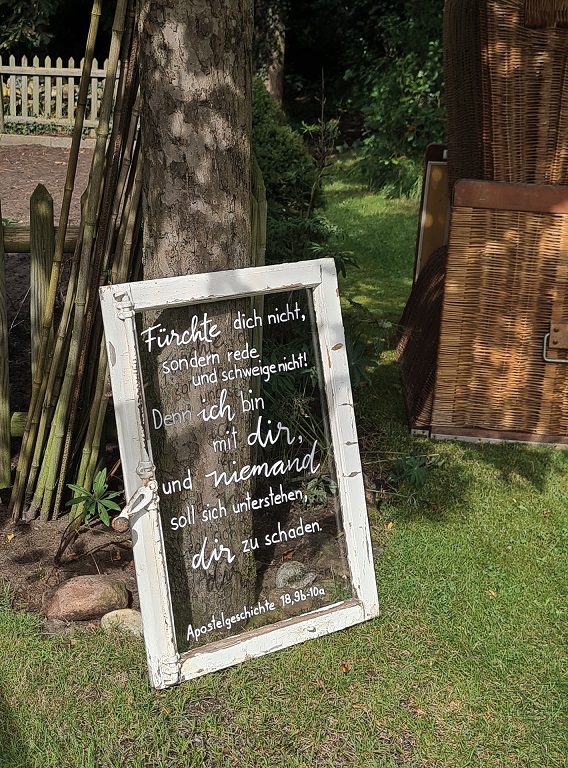 Fürchte dich nicht,
sondern rede
und schweige nicht!
Denn ich bin
mit dir,
und niemand
soll sich unterstehen,
dir zu schaden.
Apostelgeschichte 18,9b-10a